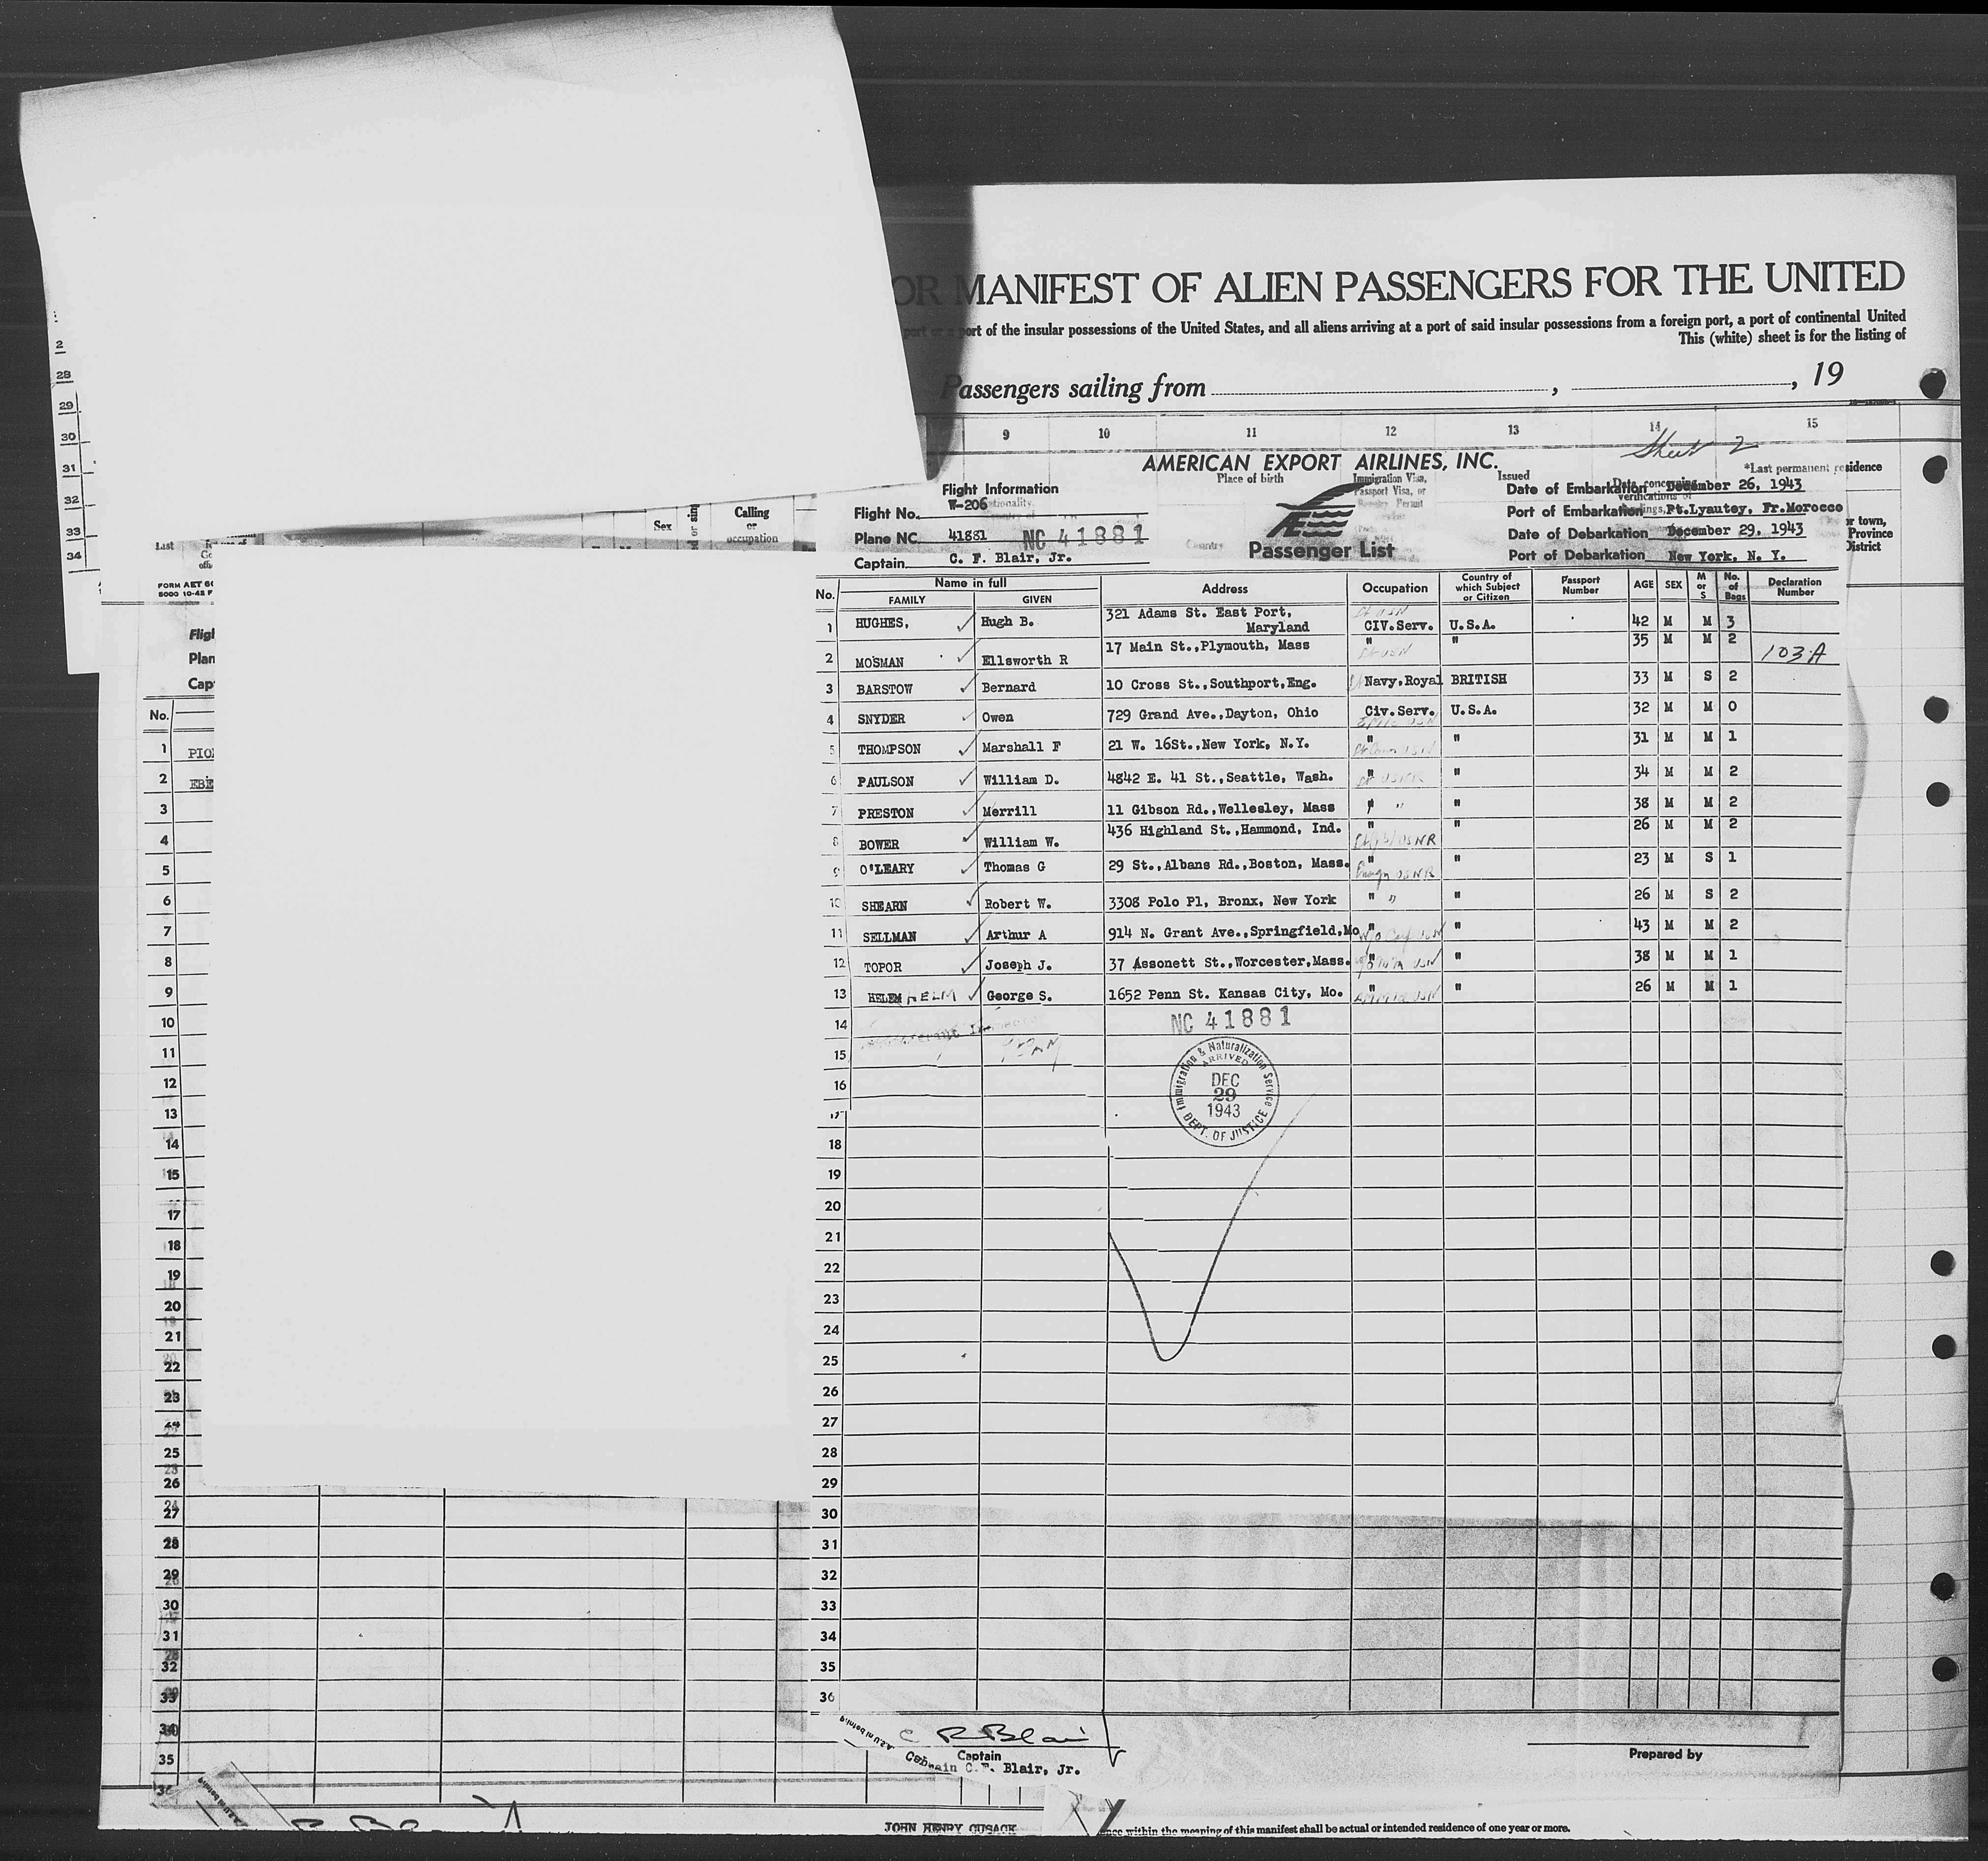 OR MANIFEST OF ALIEN PASSENGERS FOR THE UNITED
port of the insular possessions of the United States, and all aliens arriving at a port of said insular possessions from a foreign port, a port of continental United
This (white) sheet is for the listing of
Passengers sailing from , , 19
9 10 11 12 13 14 15
Sheet 2
AMERICAN EXPORT AIRLINES, INC.
Place of birth
Immigration Visa,
Passport Visa, or
Permit
Issued
*Last permanent residence
Flight Information
Flight No. W-206
Plane NC 41881 NC 41881
Captain C. F. Blair, Jr.
Passenger List
Date of Embarkation December 26, 1943
Port of Embarkation Pt.Lyautey, Fr.Morocco
Date of Debarkation December 29, 1943
Port of Debarkation New York, N. Y.
r town,
Province
District
No. Name in full Address Occupation Country of which Subject or Citizen Passport Number AGE SEX M or S No. of Bags Declaration Number
FAMILY GIVEN
1 HUGHES, Hugh B. 321 Adams St. East Port, Maryland CIV.Serv. U.S.A. 42 M M 3
2 MOSMAN Ellsworth R 17 Main St.,Plymouth, Mass " " 35 M M 2 103A
3 BARSTOW Bernard 10 Cross St.,Southport,Eng. Navy,Royal BRITISH 33 M S 2
4 SNYDER Owen 729 Grand Ave.,Dayton, Ohio Civ.Serv. U.S.A. 32 M M 0
5 THOMPSON Marshall F 21 W. 16St.,New York, N.Y. " " 31 M M 1
6 PAULSON William D. 4842 E. 41 St.,Seattle, Wash. " " 34 M M 2
7 PRESTON Merrill 11 Gibson Rd.,Wellesley, Mass " " " 38 M M 2
8 BOWER William W. 436 Highland St.,Hammond, Ind. " USNR " 26 M M 2
9 O'LEARY Thomas G 29 St.,Albans Rd.,Boston, Mass. " Ensign USNR " 23 M S 1
10 SHEARN Robert W. 3308 Polo Pl, Bronx, New York " " " 26 M S 2
11 SELLMAN Arthur A 914 N. Grant Ave.,Springfield,Mo " USN " 43 M M 2
12 TOPOR Joseph J. 37 Assonett St.,Worcester,Mass. " USN " 38 M M 1
13 HELEM HELM George S. 1652 Penn St. Kansas City, Mo. " USN " 26 M M 1
14 NC 41881
15
16
Immigration & Naturalization Service
ARRIVED
DEC
29
1943
DEPT. OF JUSTICE
18
19
20
21
22
23
24
25
26
27
28
29
30
31
32
33
34
35
36
Printed in U.S.A.
C F Blair
Captain
Captain C.F. Blair, Jr.
Prepared by
2
28
29
30
31
32
33
34
Sex
Calling
or
occupation
FORM AET 6
5000 10-42 P
Fligh
Plan
Cap
No.
1 PIO
2 EBE
3
4
5
6
7
8
9
10
11
12
13
14
15
17
18
19
20
21
22
23
24
25
26
27
28
29
30
31
32
33
34
35
36
JOHN HENRY CUSACK
nce within the meaning of this manifest shall be actual or intended residence of one year or more.